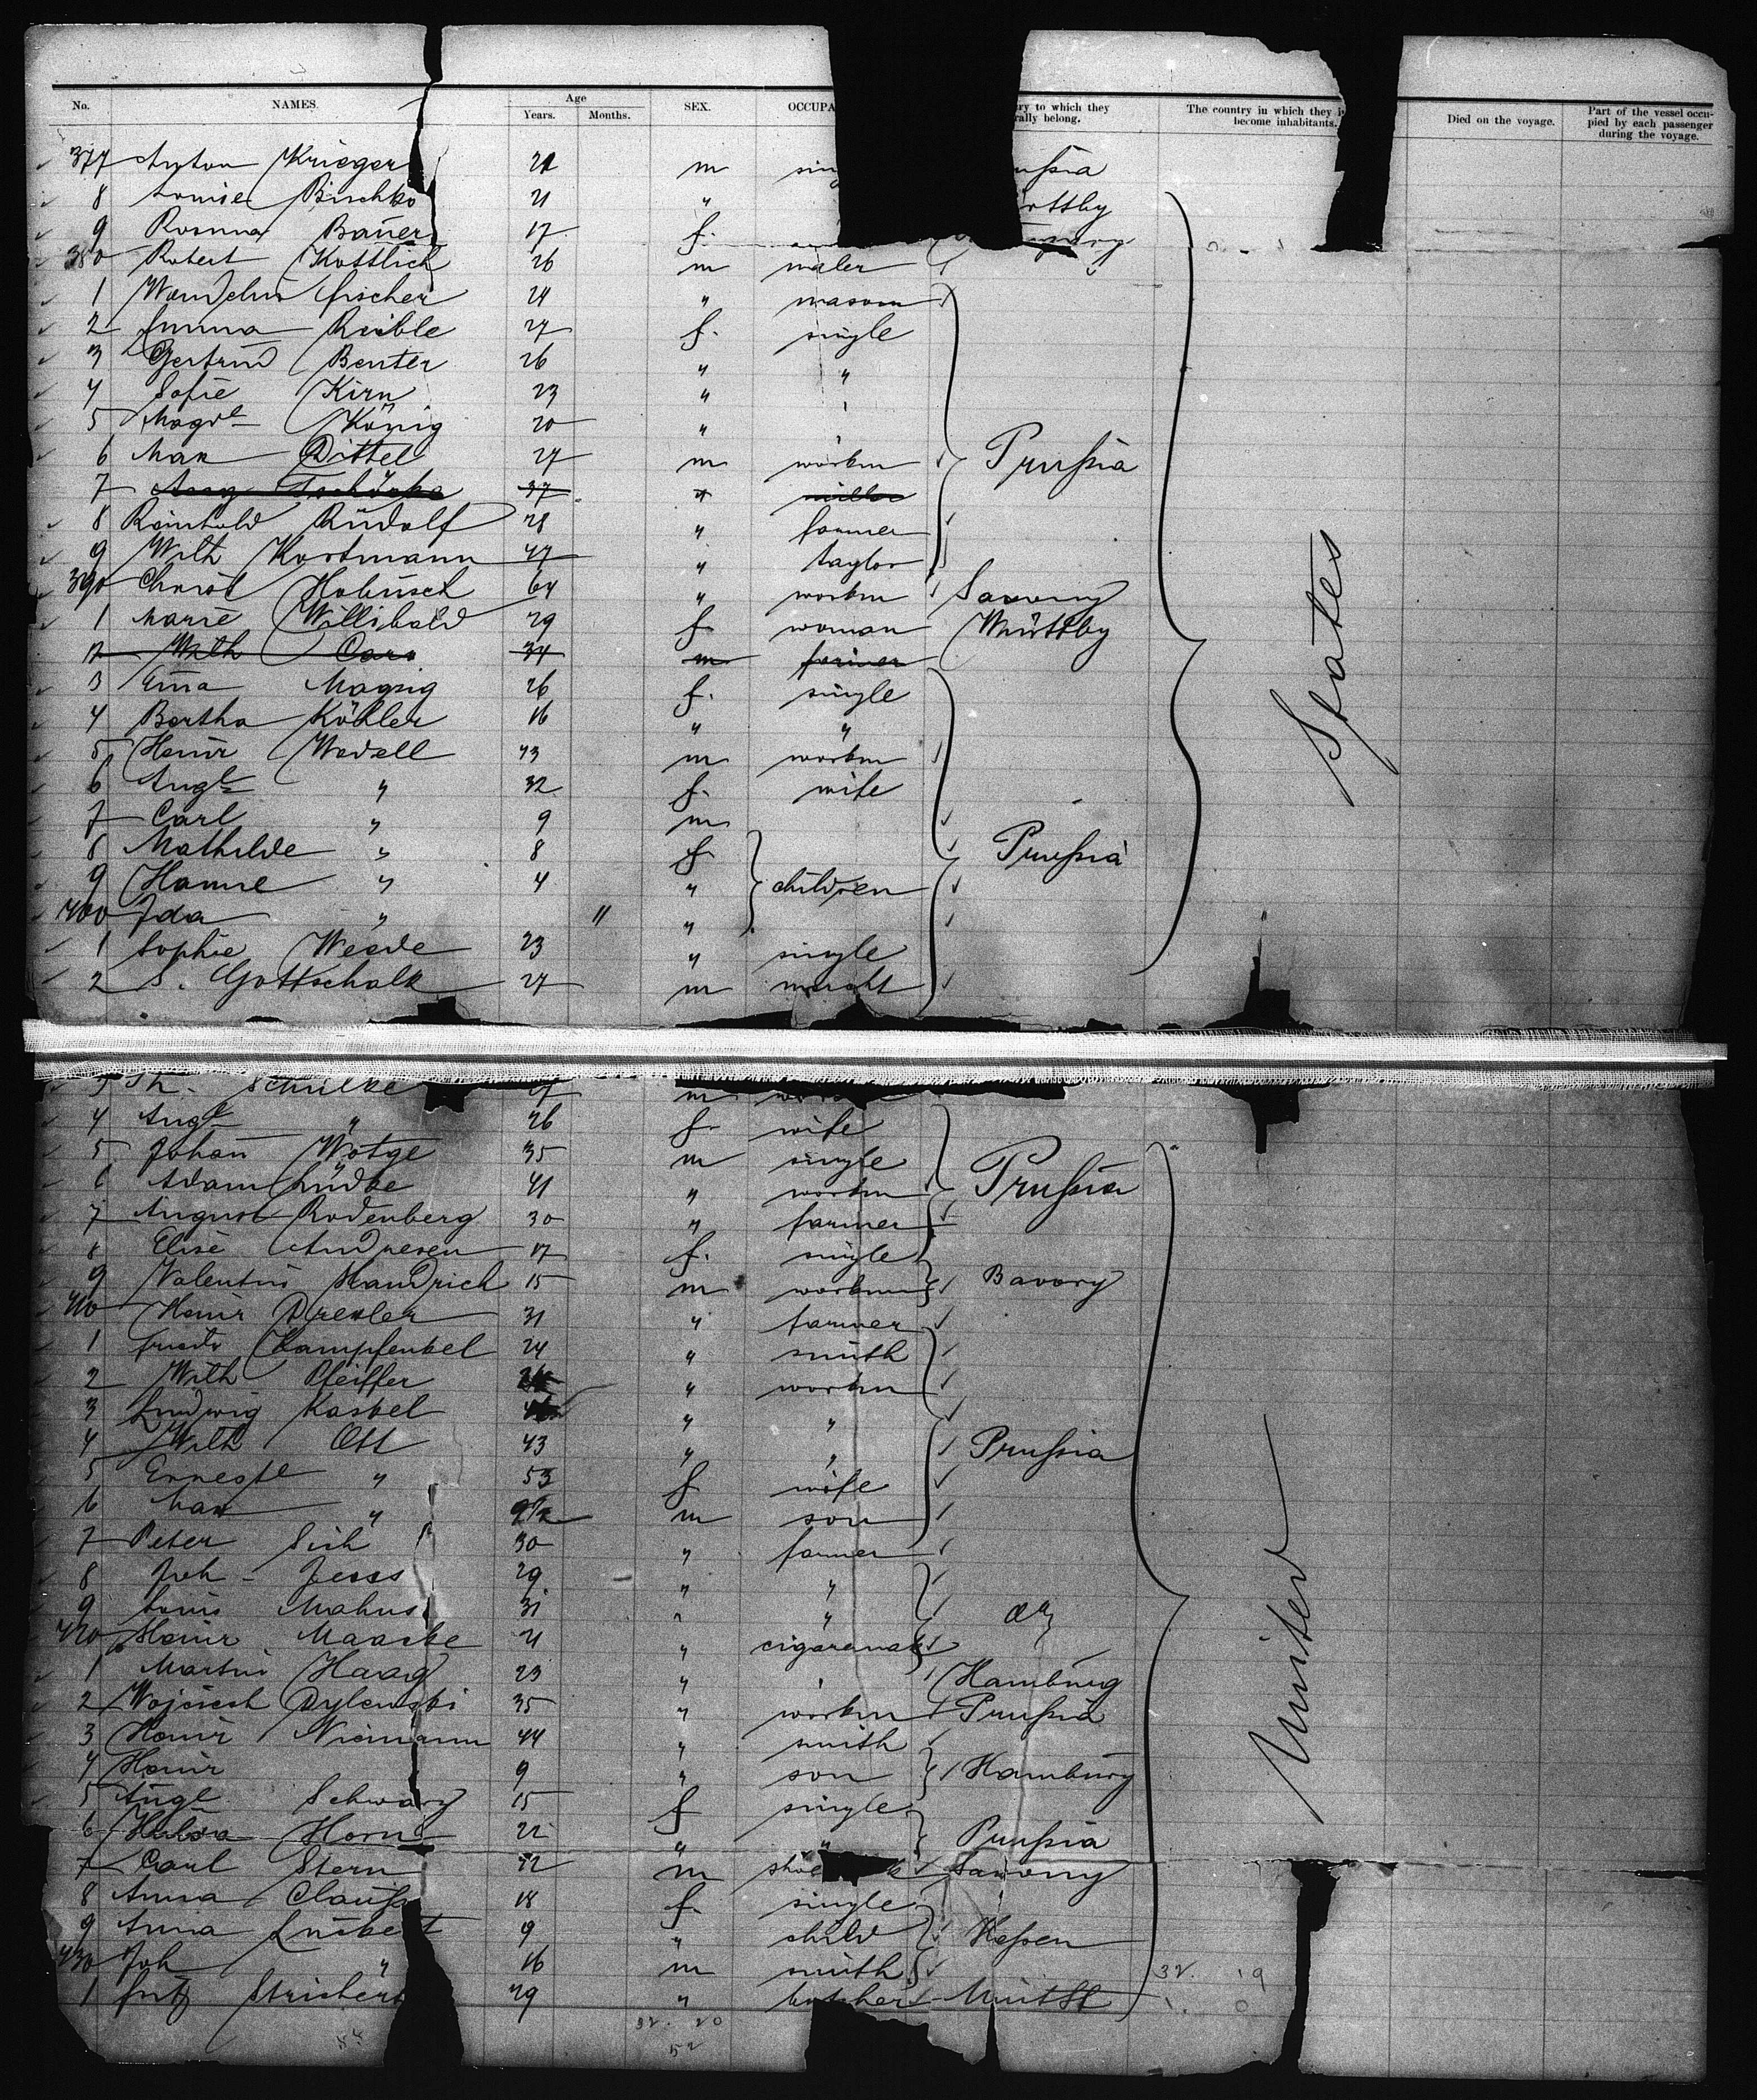 No. NAMES. Age Years. Months. SEX. OCCUPA ry to which they rally belong. The country in which they i become inhabitants. Died on the voyage. Part of the vessel occupied by each passenger during the voyage.
377 Anton Krieger 21 m sin ußia
8 Louise Bischko 21 " rttby
9 Rosina Bauer 17 f.
380 Robert Kottlich 26 m maler
1 Wendelin Fischer 24 " mason
2 Emma Reible 27 f. single
3 Gertrud Benter 26 " "
4 Sofie Kirn 23 "
5 Magdl König 20 "
6 Max Dittel 27 m workm Prußia
7 Aug 37 " miller
8 Reinhold Rudolf 28 " farmer
9 Wilh Kortmann 47 " taylor
390 Christ Hobusch 64 " workm Saxony
1 Marie Willibald 29 f woman Württby
2 Wilh 34 m farmer
3 Em̄a Magsig 26 f. single
4 Bertha Köhler 16 " "
5 Heinr Wedell 43 m workm
6 Augte " 32 f. wife
7 Carl " 9 m
8 Mathilde " 8 f Prußia
9 Hanne " 4 " children
400 Ida " 11 "
1 Sophie Weede 23 " single
2 S. Gottschalk 27 m mercht
States
3 Th. Schulke m
4 Augte " 26 f wife
5 Johan̄ Wotge 35 m single
6 Adam Lüdke 41 " workm Prußia
7 August Rodenberg 30 " farmer
8 Elise Andresen 17 f. single
9 Valentin Handrich 15 m workm Bavary
410 Heinr Drexler 31 " farmer
1 Friedr Kampfenkel 24 " smith
2 Wilh Pfeiffer " workm
3 Ludwig Kaskel " "
4 Wilh Ott 43 " " Prußia
5 Erneste " 53 f wife
6 Max " 9½ m son
7 Peter Sish 30 " farmer
8 Joh Jess 29 " "
9 Louis Mahns 31 " "
420 Heinr Maacke 21 " cigaremak
1 Martin Haag 23 " Hamburg
2 Wojciech Dylewski 35 " workm Prußia
3 Heinr Niemann 44 " smith
4 Heinr 9 " son Hamburg
5 Augte Schwarz 15 f single
6 Hulda Horn 22 " " Prußia
7 Carl Stern 42 m shoe Saxony
8 Anna Clauß 18 f. single
9 Anna Lubert 9 " child Heßen
430 Joh " 16 m smith
1 Fritz Strichert 29 " butcher Unit St
United
32. 19
1. 0
32. 20
52